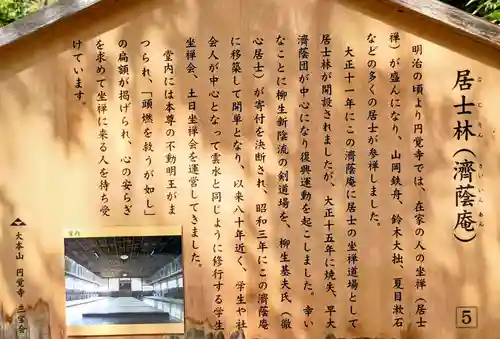 居士林（濟蔭庵）
こじりん さいいんあん
明治の頃より円覚寺では、在家の人の坐禅（居士
禅）が盛んになり、山岡鉄舟、鈴木大拙、夏目漱石
などの多くの居士が参禅しました。
大正十一年にこの濟蔭庵に居士の坐禅道場として
居士林が開設されましたが、大正十五年に焼失、早大
濟蔭団が中心になり復興運動を起こしました。幸い
なことに柳生新陰流の剣道場を、柳生基夫氏（徹
心居士）が寄付を決断され、昭和三年にこの濟蔭庵
に移築して開単となり、以来八十年近く、学生や社
会人が中心となって雲水と同じように修行する学生
坐禅会、土日坐禅会を運営してきました。
堂内には本尊の不動明王がま
つられ、「頭燃を救うが如し」
の扁額が掲げられ、心の安らぎ
を求めて坐禅に来る人を待ち受
けています。
室内
大本山 円覚寺 三宝会
5